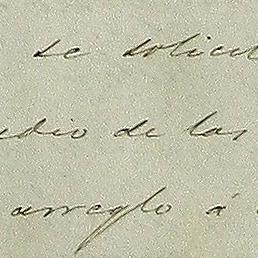 se solicit
udio de las
arreglo á